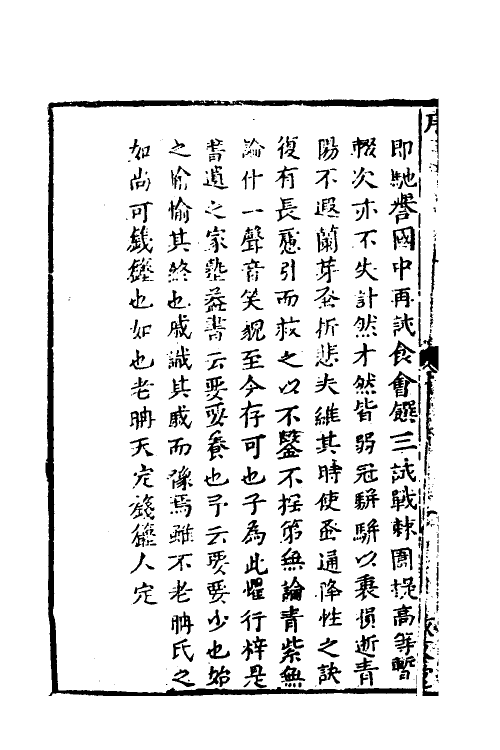 即馳譽國中再試食會饌三試戰棘圍援高等暫
輟次亦不失計然才然皆弱冠騈騈以稟損逝青
陽不遐蘭芽蚤折悲夫維其時使蚤通降性之訣
復有長慝引而救之以不鑒不捱第無論青紫無
論什一聲音笑貌至今存可也子為此懼行梓是
書遺之家塾葢書云要要養也予云要要少也始
之愉愉其終也戚識其戚而豫焉雖不老聃氏之
如尚可籛鏗也如也老聃天定籛鏗人定